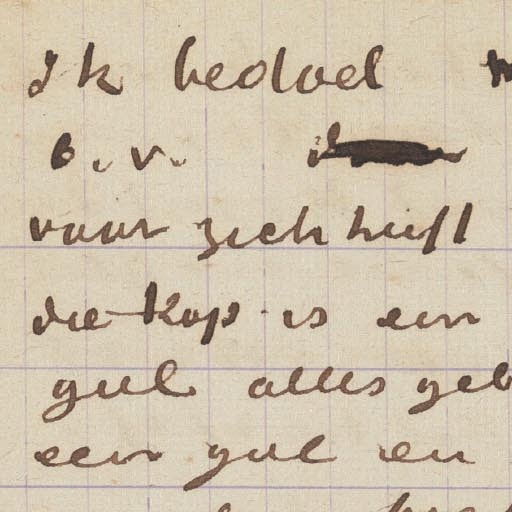 Ik bedoel
b.v.
voor zich heeft
die kop is een
geel alles geb
een geel en